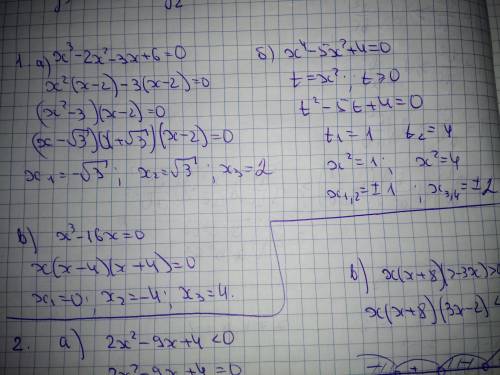 1. а) x³-2x²-3x+6=0
x²(x-2)-3(x-2)=0
(x²-3)(x-2)=0
(x-√3)(x+√3)(x-2)=0
x₁=-√3; x₂=√3; x₃=2
б) x⁴-5x²+4=0
t=x²; t>0
t²-5t+4=0
t₁=1 t₂=4
x²=1; x²=4
x₁,₂=±1; x₃,₄=±2
в) x³-16x=0
x(x-4)(x+4)=0
x₁=0; x₂=-4; x₃=4.
2. а) 2x²-9x+4<0
2x²-9x+4=0
в) x(x+8)
x(x+8)(3x-2)